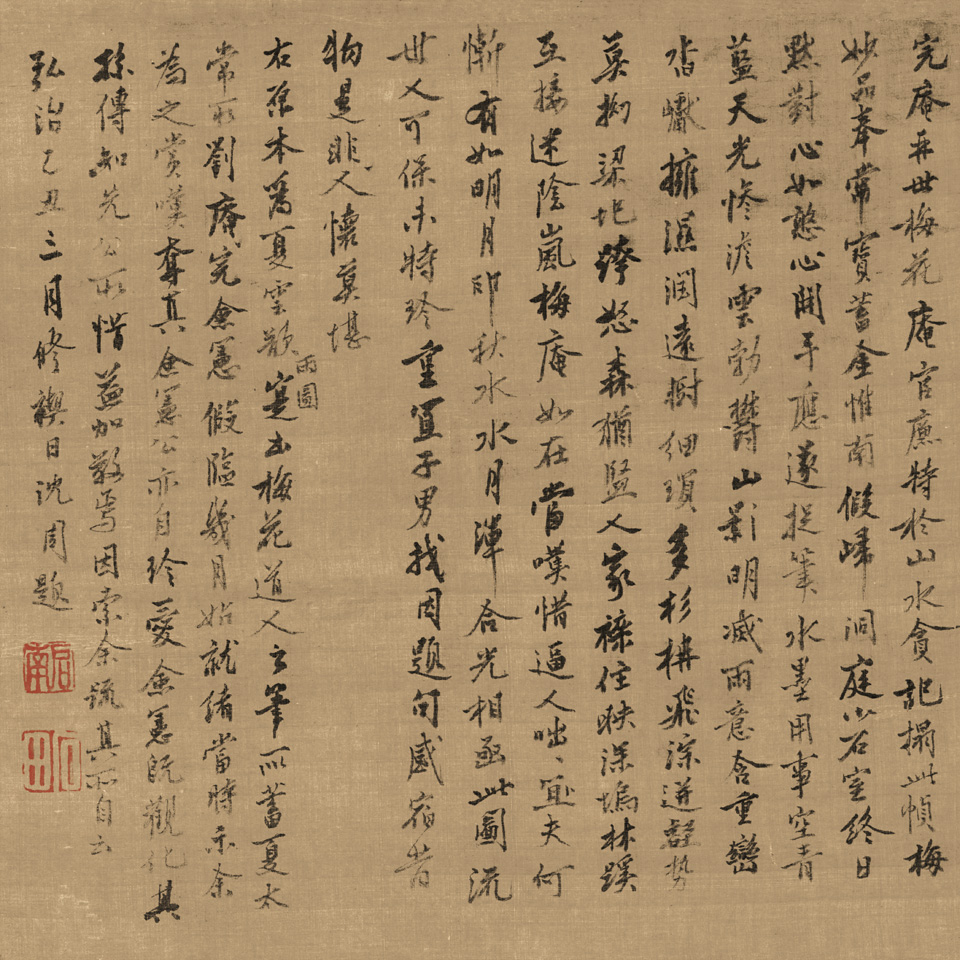 完庵再世梅花庵官廉特於山水貪記搨此幀梅
妙品奉常寳蓄金惟南假歸洞庭小石室終日
黙對心如憨心開手應遂捉筆水墨用事空青
藍天光慘澹雲勃欝山影明滅雨意含重巒
沓巘擁濕潤遠樹細瑣多杉枏飛淙迸壑勢
莫拗梁圯蹲怒森猶監人家祿住映深塢林蹊
互接迷陰嵐梅庵如在當嘆惜逼人咄、宜夫何
慚有如明月印秋水水月渾合光相函此圖流
世人可保未特珍重冝子男找因題句感宿昔
物是非人懷莫堪
右原本爲夏雲欲雨圖寔出梅花道人之筆而蓄夏太
常所劉庵完僉憲假臨幾月始就緒當時示余
為之賞嘆奪真僉憲公亦自珍愛僉憲既觀化其
孫傳知先公所惜益加敬焉因索余疏其所自云
弘治乙丑三月修禊日沈周題